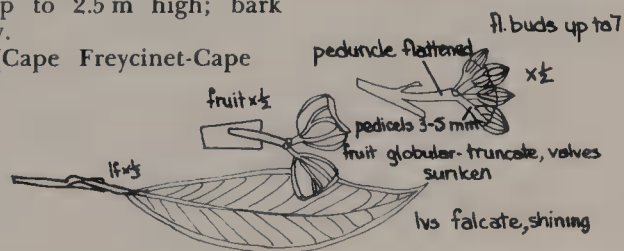 up to 2.5 m high; bark
y.
Cape Freycinet-Cape
fl. buds up to 7
peduncle flattened
x½
fruit x½
pedicels 3-5 mm
fruit globular-truncate, valves
sunken
lf x⅓
lvs falcate, shining